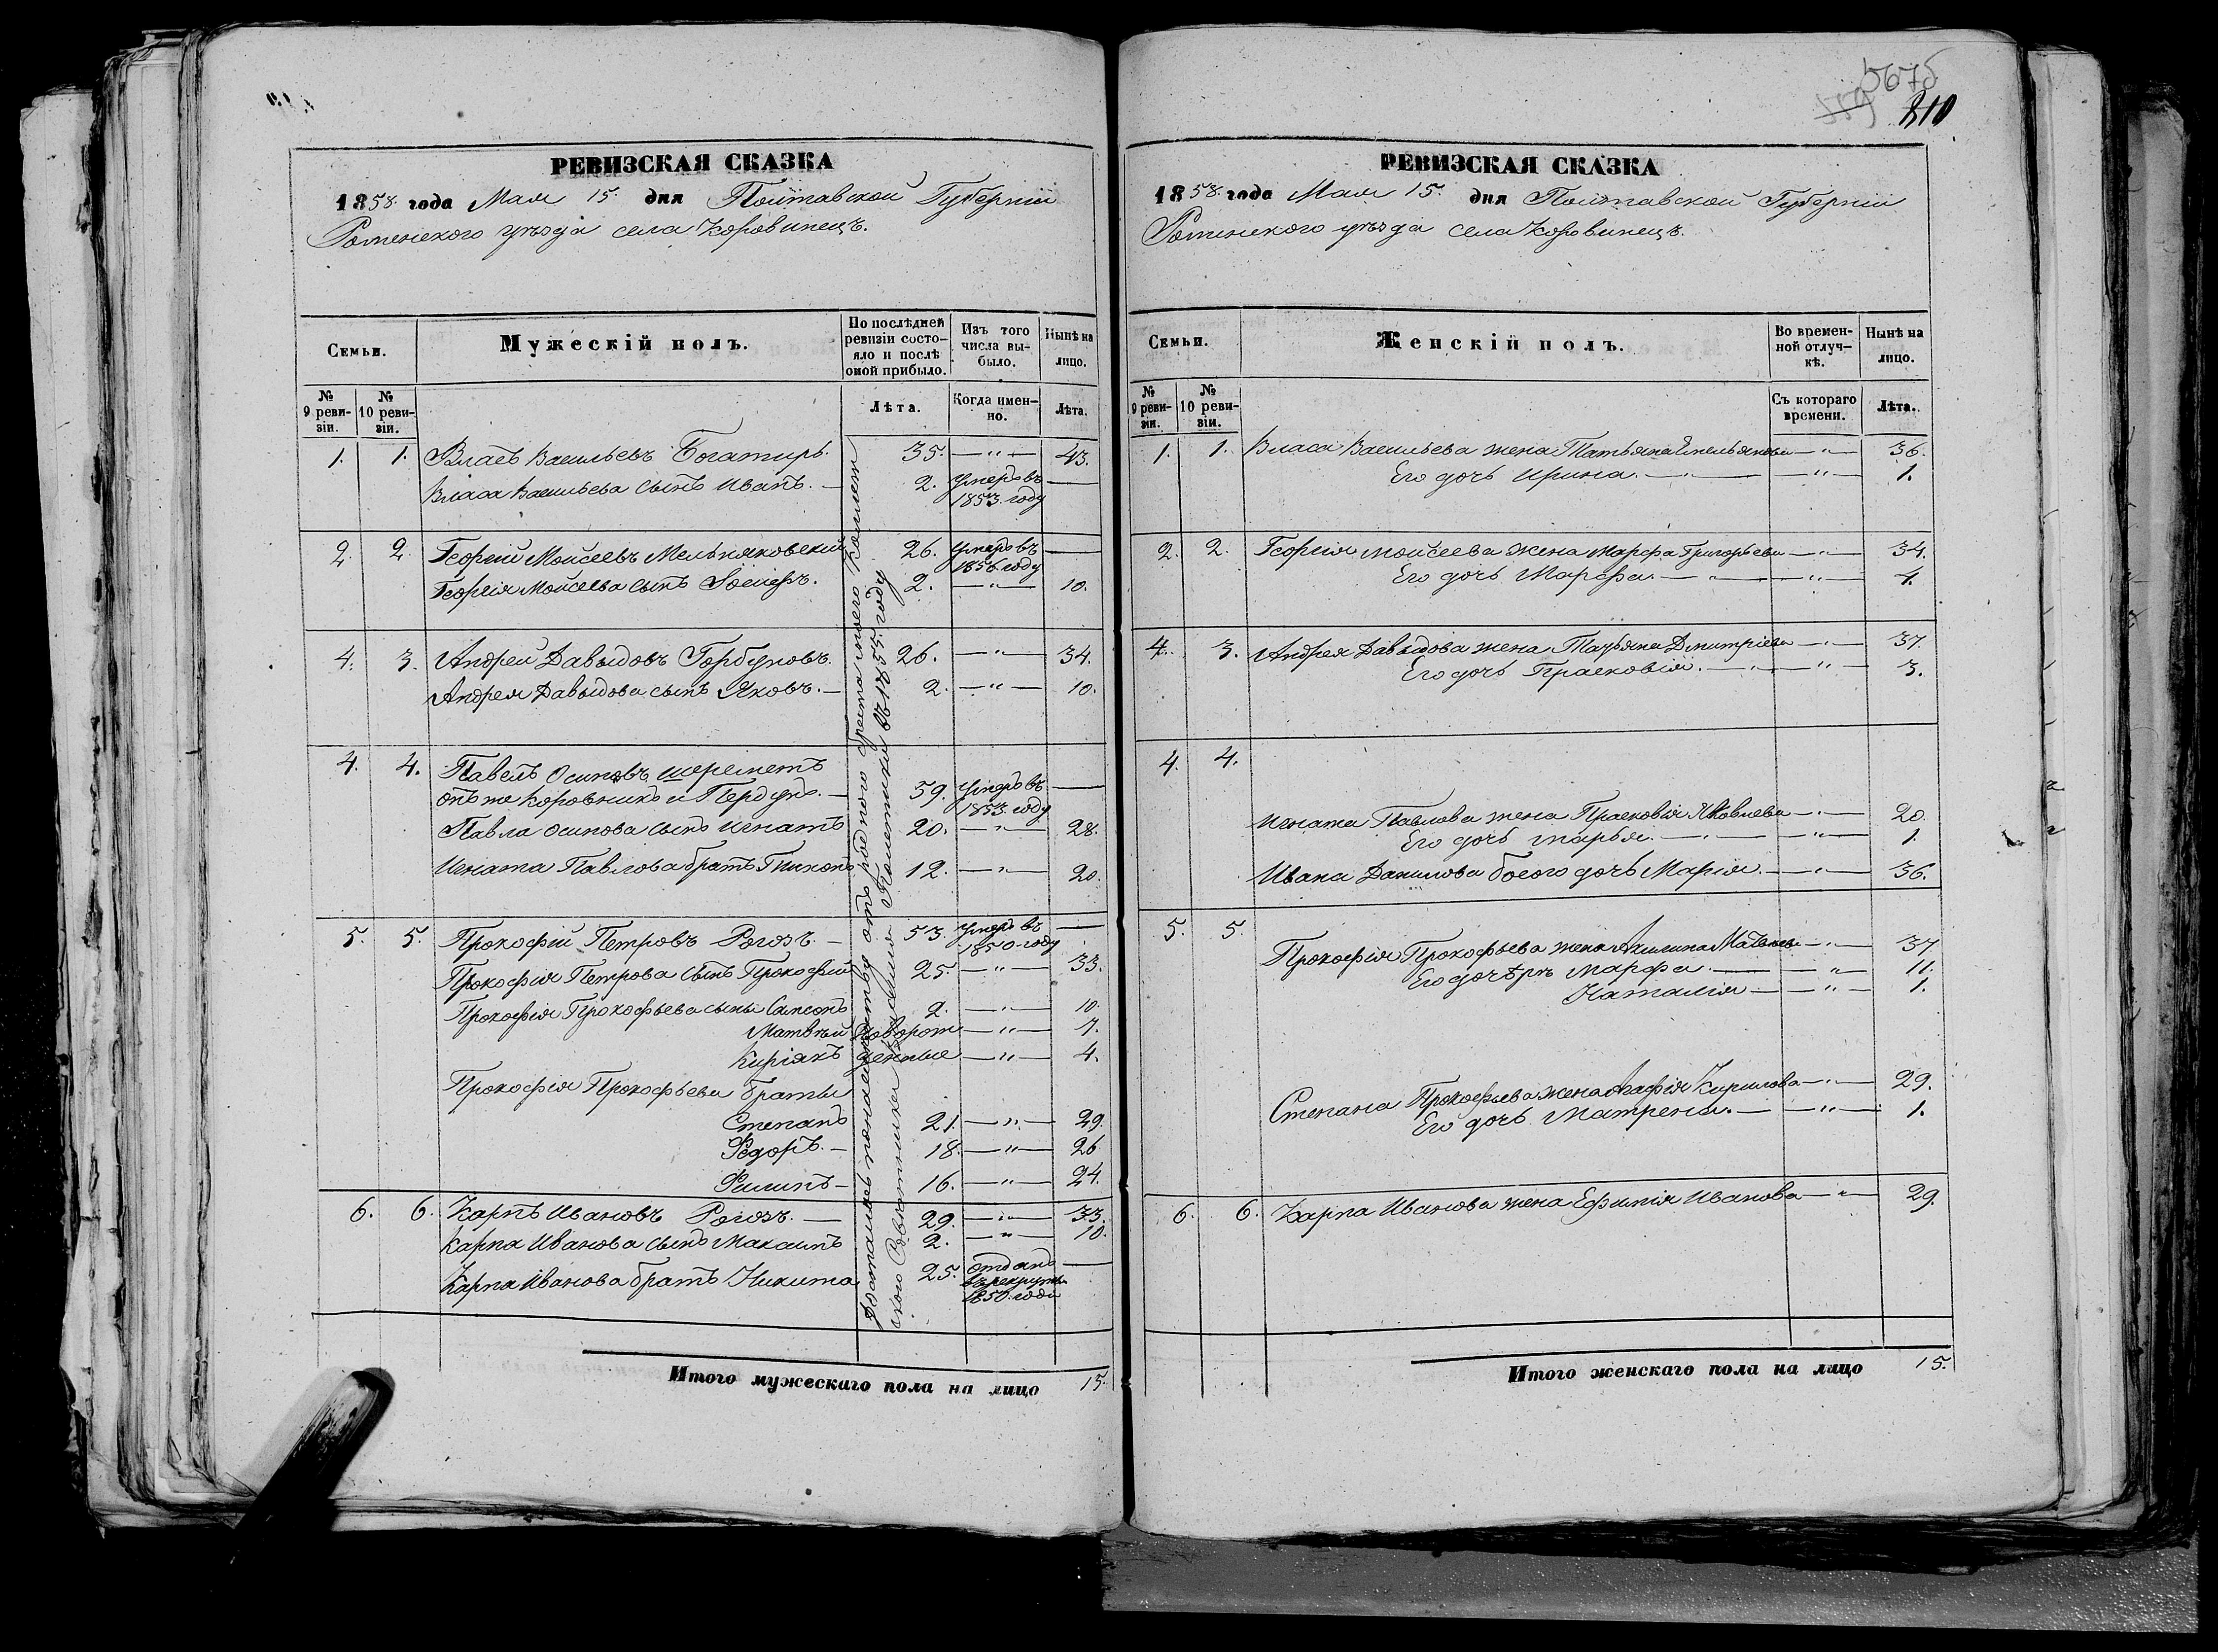 РЕВИЗСКАЯ СКАЗКА
1858 года Мая 15 дня Полтавской Губерніи
Роменского уѣзда села Коровинецъ.
Семьи.
Мужескій полъ.
По послѣдней ревизіи состояло и послѣ оной прибыло.
Изъ того числа выбыло.
Нынѣ на лицо.
№ 9 ревизіи.
№ 10 ревизіи.
Лѣта.
Когда именно.
Лѣта.
1. 1. Власъ Васильевъ Богатырь. 35. — " — 43.
Власа Васильева сынъ Иванъ. — 2. умеръ въ 1853. году —
2. 2. Георгій Моисеевъ Мельняковскій 26. умеръ въ 1856 году —
Георгія Моисеева сынъ Іосифъ. 2. — " — 10.
4. 3. Андрей Давыдовъ Горбуновъ. 26. — " — 34.
Андрея Давыдова сынъ Яковъ. — 2. — " — 10.
4. 4. Павелъ Осиповъ Шереметъ
онъ же Коровникъ и Пердунъ. — 59. умеръ въ 1853. году —
Павла Осипова сынъ Игнатъ 20. — " — 28.
Игната Павлова братъ Тихонъ 12. — " — 20.
5. 5. Прокофій Петровъ Рогозъ. — 53. умеръ въ 1850. году —
Прокофія Петрова сынъ Прокофій 25. — " — 33.
Прокофія Прокофьева сыны Самсонъ 2. — " — 10.
Матвѣй новорож — " — 7.
Киріякъ денные — " — 4.
Прокофія Прокофьева братья
Степанъ 21. — " — 29.
Федоръ. — 18. — " — 26
Филипъ — 16. — " — 24.
6. 6. Карпъ Ивановъ Рогозъ. — 29. — " — 33.
Карпа Иванова сынъ Максимъ 2. — " — 10.
Карпа Иванова братъ Никита 25. отданъ въ рекруты 1850. года —
Достались мнѣ отъ родного брата моего Коллеж
ского Совѣтника въ 1855. году
Итого мужескаго пола на лицо 15.
567б
559
810
РЕВИЗСКАЯ СКАЗКА
1858 года Мая 15. дня Полтавской Губерніи
Роменского уѣзда села Коровинецъ.
Семьи.
Женскій полъ.
Во временной отлучкѣ.
Нынѣ на лицо.
№ 9 ревизіи.
№ 10 ревизіи.
Съ котораго времени.
Лѣта.
1. 1. Власа Васильева жена Татьяна Емельянова — " — 36.
Его дочь Ирина. — " — — " — 1.
2. 2. Георгія Моисеева жена Марфа Григорьева — " — 34.
Его дочь Марфа. — " — — " — 4.
4. 3. Андрея Давыдова жена Татьяна Дмитріева — " — 37.
Его дочь Прасковія. — " — — " — 3.
4. 4.
Игната Павлова жена Прасковія Яковлева — " — 20.
Его дочь Марья. — " — — " — 1.
Ивана Данилова Босого дочь Марія. — " — 36.
5. 5.
Прокофія Прокофьева жена Акилина Матвѣева — " — 37
Его дочѣри Марфа — — " — 11.
Наталія — — " — 1.
Степана Прокофьева жена Агафія Кирилова — " — 29.
Его дочь Матрена. — — " — 1.
6. 6. Карпа Иванова жена Ефимія Иванова — " — 29.
Итого женскаго пола на лицо 15.